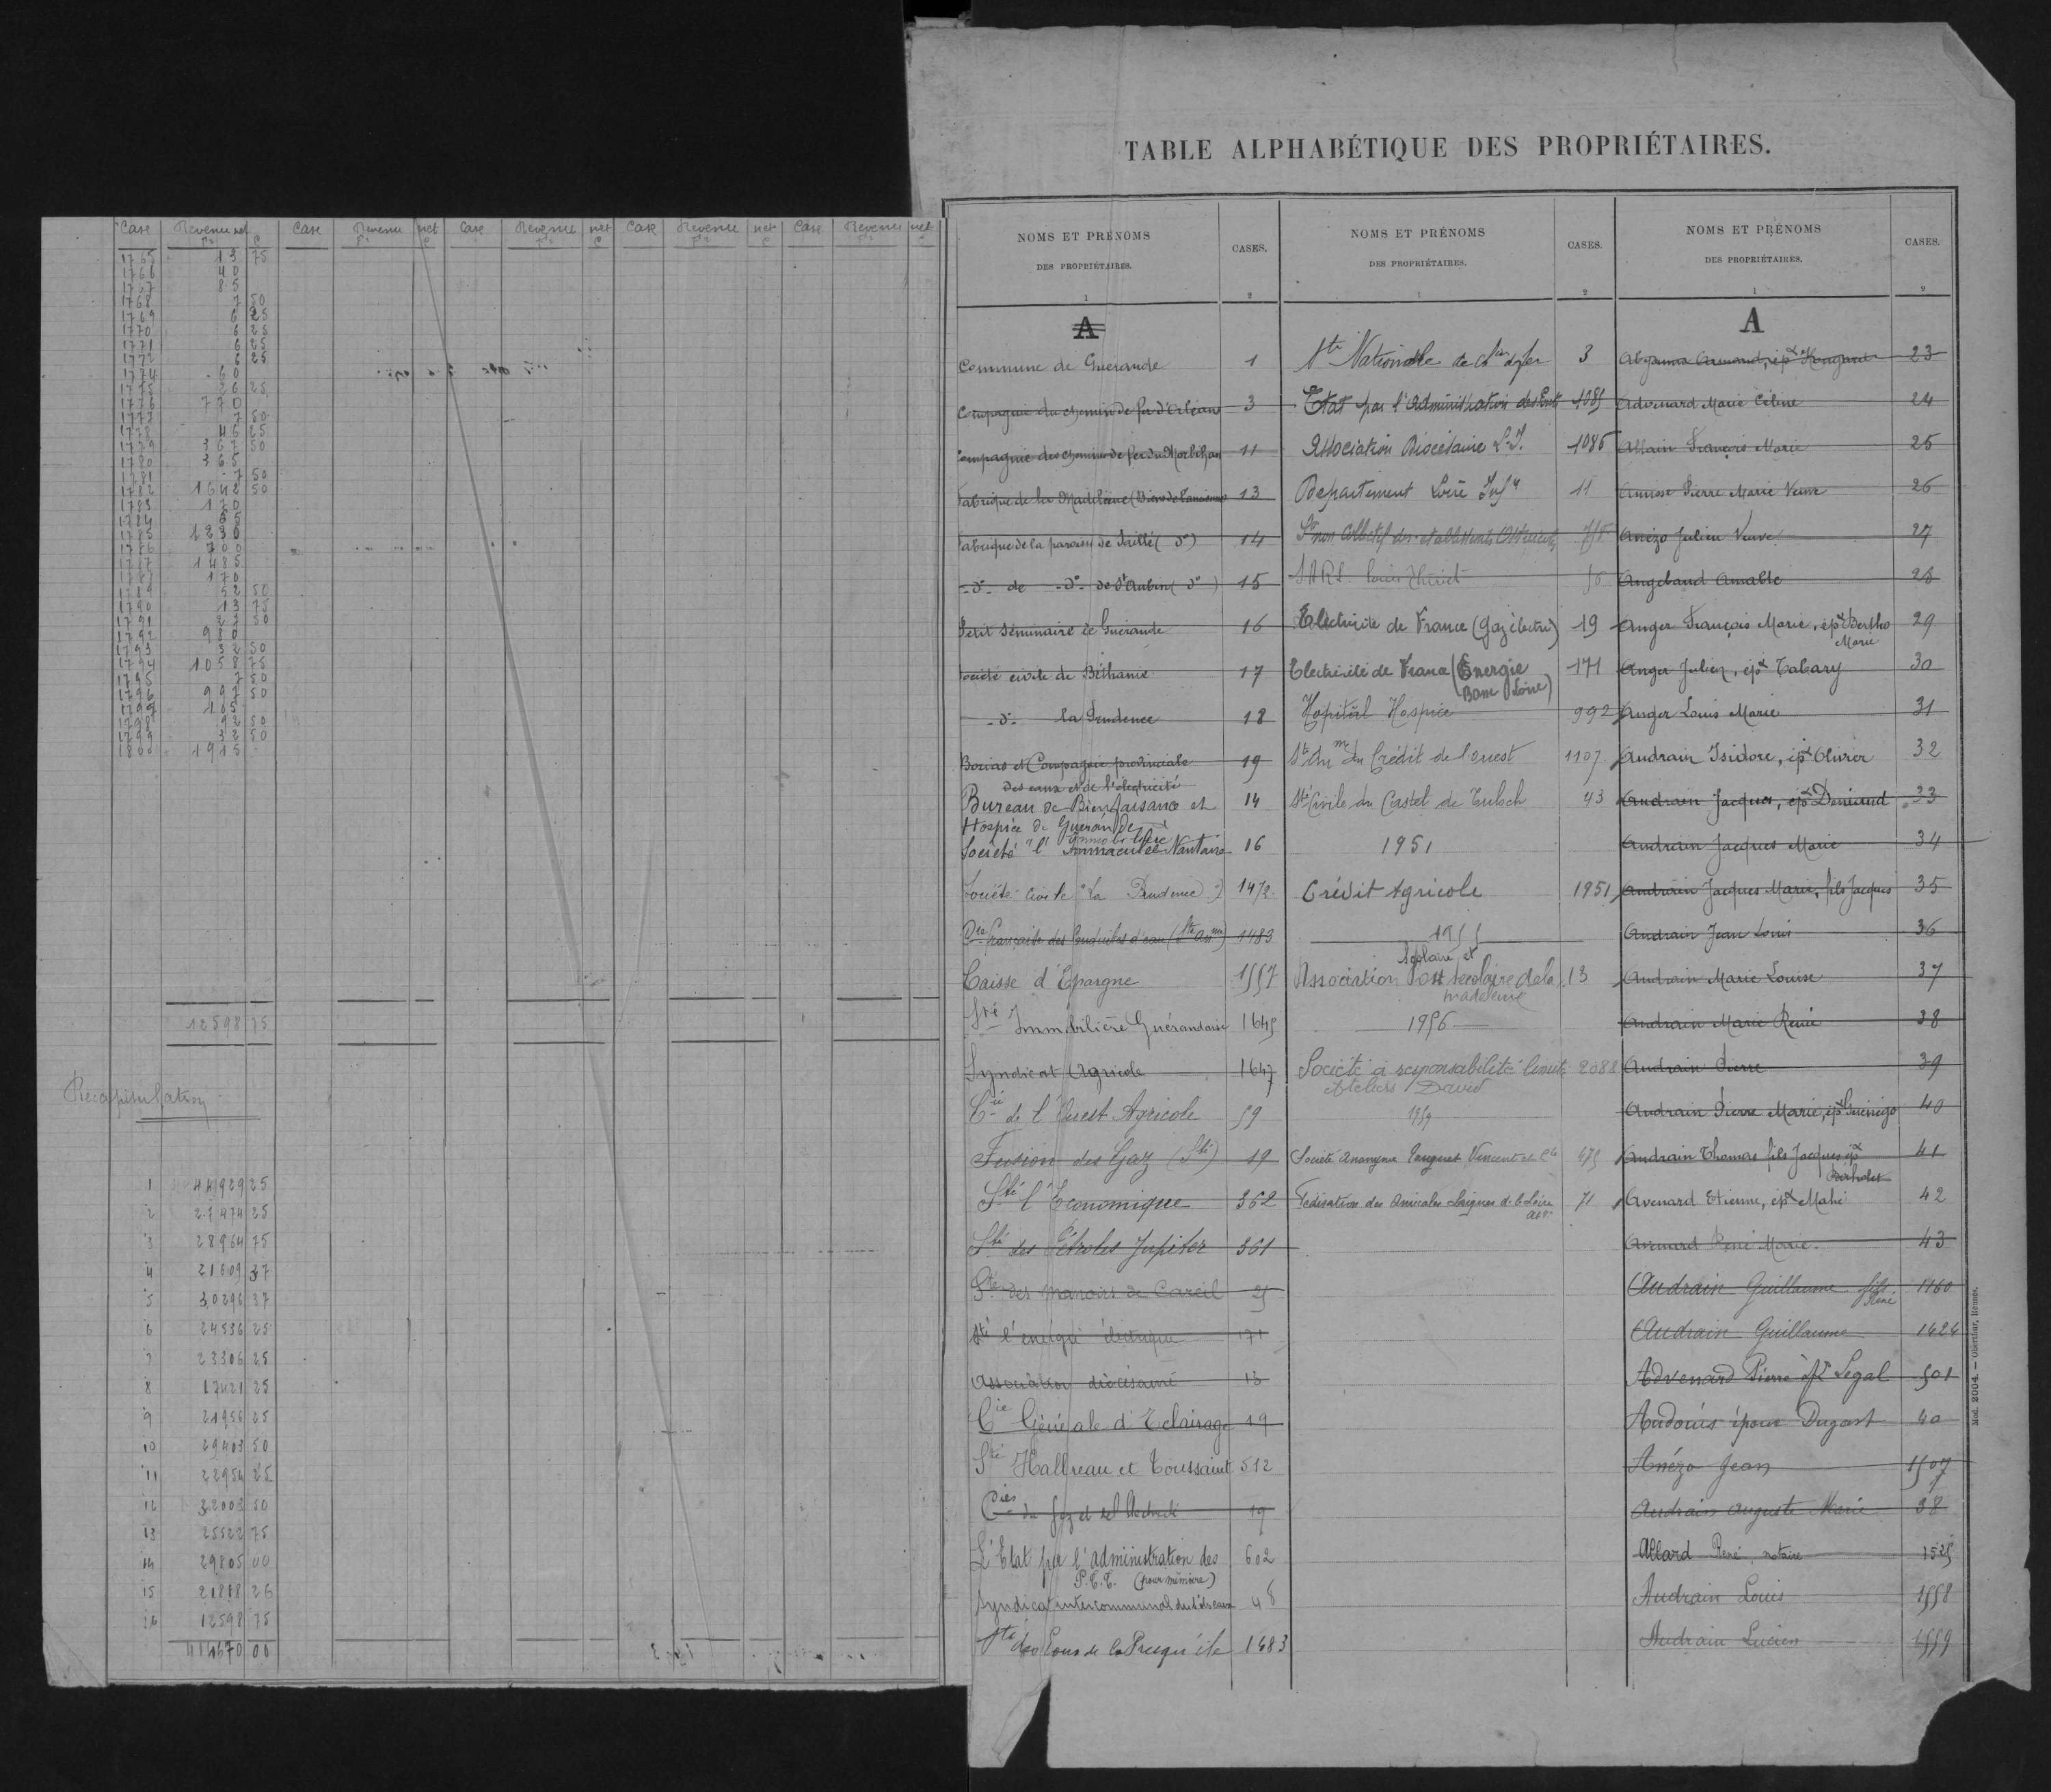 Case Revenu net Case Revenu net Case Revenu net Case Revenu net Case Revenu net
fr c fr c fr c fr c fr c
1765 13 75
1766 40
1767 85
1768 7 50
1769 6 25
1770 6 25
1771 6 25
1772 6 25
1774 60
1775 26 25
1776 770
1777 7 50
1778 46 25
1779 367 50
1780 365
1781 7 50
1782 1642 50
1783 170
1784 65
1785 1230
1786 700
1787 1485
1788 170
1789 52 50
1790 13 75
1791 23 50
1792 980
1793 32 50
1794 1058 75
1795 7 50
1796 997 50
1797 185
1798 92 50
1799 32 50
1800 1915
12598 75
Récapitulation
1 44929 25
2 27474 25
3 28964 75
4 21609 37
5 30296 37
6 24536 25
7 23306 25
8 17421 25
9 21956 25
10 29403 50
11 22954 25
12 32003 50
13 25522 75
14 29805 00
15 21888 26
16 12598 75
414670 00
TABLE ALPHABÉTIQUE DES PROPRIÉTAIRES.
NOMS ET PRÉNOMS
DES PROPRIÉTAIRES.
CASES.
1 2
A
Commune de Guérande 1
Compagnie du chemin de fer d'Orléans 3
Compagnie des chemins de fer du Morbihan 11
Fabrique de la Madeleine (Biens de l'ancienne) 13
Fabrique de la paroisse de Saillé (do) 14
do de do de St Aubin (do) 15
Petit Séminaire de Guérande 16
Société civile de Béthanie 17
do la Prudence 18
Borias et Compagnie provinciale 19
des eaux et de l'électricité
Bureau de Bienfaisance et 14
Hospice de Guérande
Immobilière
Société "l'Immaculée Nantaise 16
Société civile "La Prudence" 1472
Cie Française des Conduites d'eau (Sté anme) 1483
Caisse d'Epargne 1557
Sté Immobilière Guérandaise 1645
Syndicat Agricole 1647
Cie de l'Ouest Agricole 59
Fusion des Gaz (Sté) 19
Sté l'Economique 362
Sté des Pétroles Jupiter 361
Sté des Manoirs de Careil 25
Sté l'énergie électrique 171
Association diocésaine 13
Cie Générale d'Eclairage 19
Sté Hallreau et Toussaint 512
Cies du Gaz et de l'électricité 19
L'Etat par l'administration des 602
P.T.T. (pour mémoire)
Syndicat intercommunal des 48
Sté des Eaux de la Presqu'ile 1483
NOMS ET PRÉNOMS
DES PROPRIÉTAIRES.
CASES.
1 2
Sté Nationale de chin de fer 3
Etat par l'Administration des 1085
Association Diocésaine L.I. 1086
Département Loire Infre 11
nom collectif des établissements
S.A.R.L. Louis
Electricité de France (Gaz électric) 19
Electricité de France (Energie 171
Basse Loire)
Hopital Hospice 992
Sté Anme du Crédit de l'ouest 1107
Sté Civile du Castel de 43
1951
Crédit Agricole 1951
1955
Scolaire et
Association Post scolaire de la 13
Madeleine
1956
Société à responsabilité limité 2088
Ateliers David
1959
Société Anonyme Vincent et Cie 475
Fédération des Amicales Laïques de la Loire 71
NOMS ET PRÉNOMS
DES PROPRIÉTAIRES.
CASES.
1 2
A
Armand, épx 23
Advenard Marie Céline 24
Allain François Marie 25
Amisse Pierre Marie Veuve 26
Anézo Julien Veuve 27
Angebaud Amable 28
Anger François Marie, épx Bertho 29
Marie
Anger Julien, épx Tabary 30
Anger Louis Marie 31
Audrain Isidore, épx Olivier 32
Audrain Jacques, épx Deniaud 33
Audrain Jacques Marie 34
Audrain Jacques Marie, fils Jacques 35
Audrain Jean Louis 36
Audrain Marie Louise 37
Audrain Marie René 38
Audrain Pierre 39
Audrain Pierre Marie, épx Guénégo 40
Audrain Thomas fils Jacques épx 41
Avenard Etienne, épx Mahé 42
Avenard René Marie 43
Audrain Guillaume fils 1160
René
Audrain Guillaume 1424
Advenard Pierre épx Legal 501
Audouis époux Dugast 40
Anézo Jean 1507
Audrain Auguste Marie 38
Allard René, notaire 1525
Audrain Louis 1558
Audrain Lucien 1559
Mod. 2004. — Oberthur, Rennes.